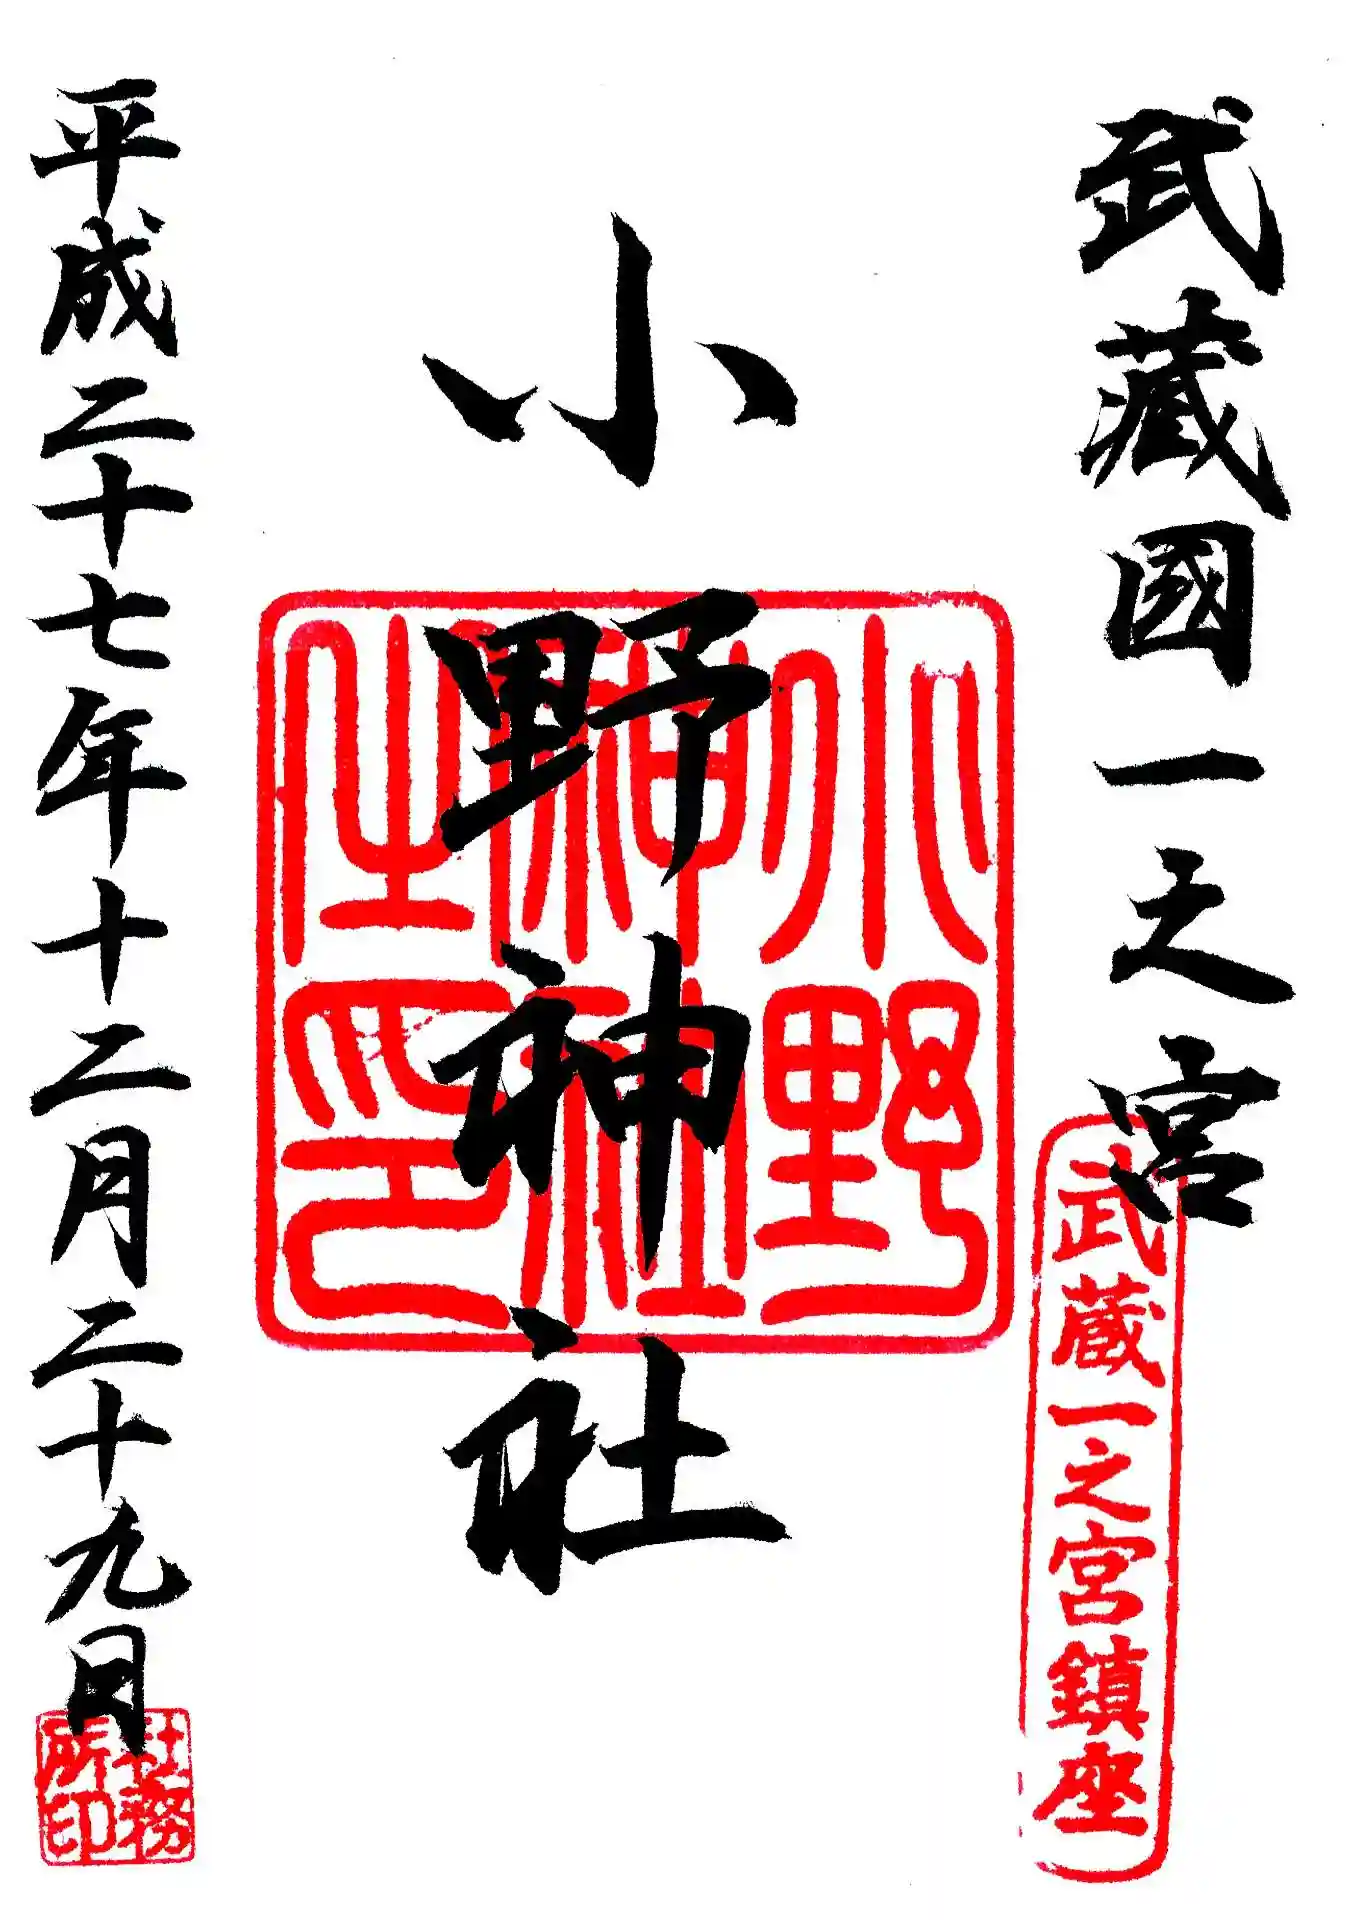 武藏國一之宮
武蔵一之宮鎮座
小野神社
小野神社之印
平成二十七年十二月二十九日
社務所印